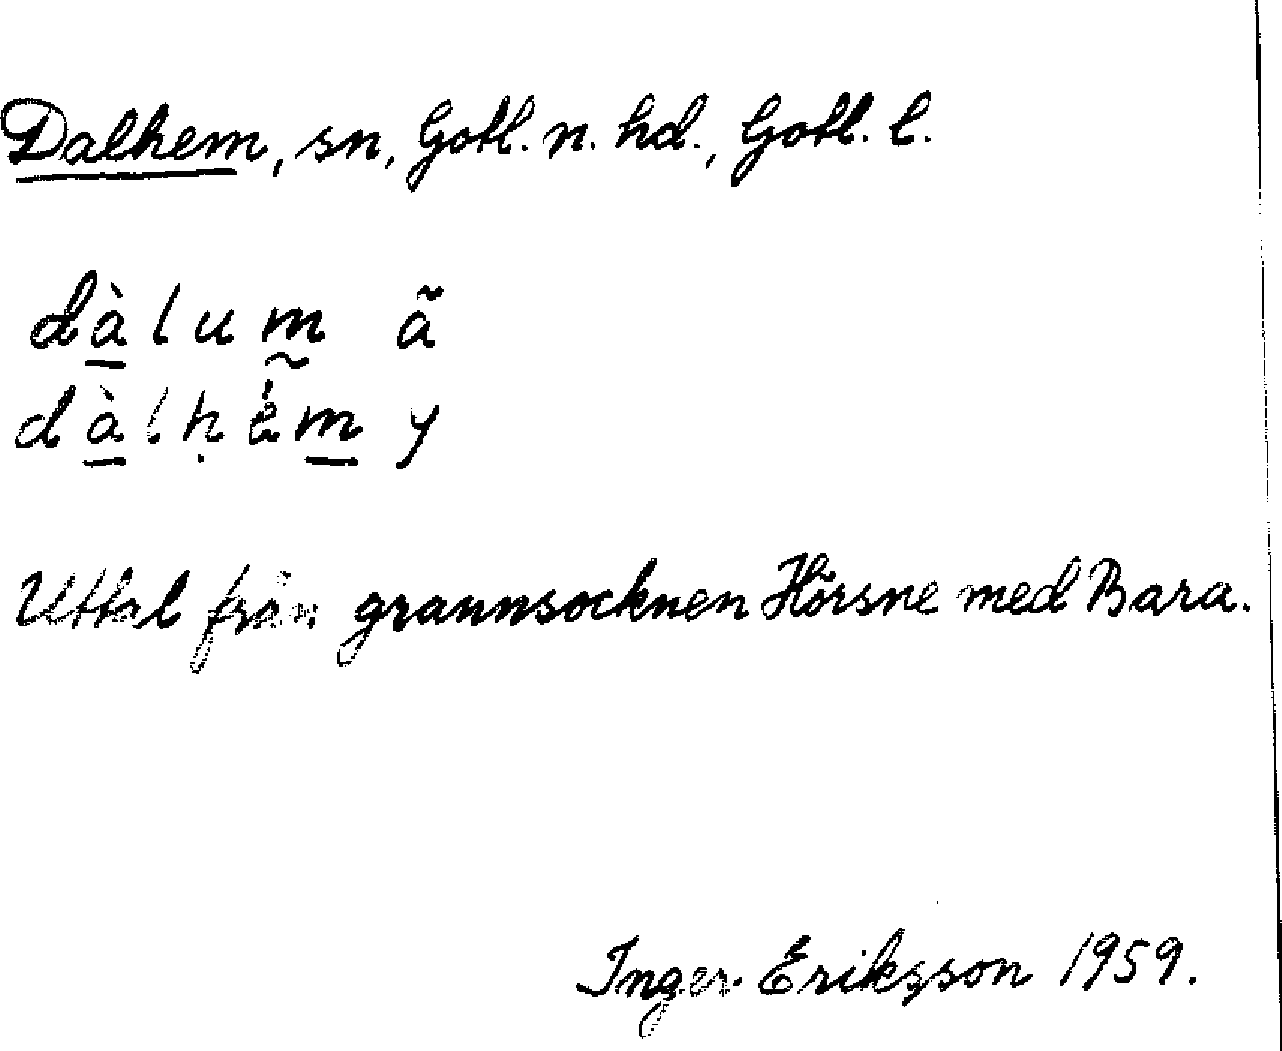 Dalhem, sn, Gotl. n. hd., Gotl. l.
dà̱lum ã
dà̱lḥẽ̀m̱ y
Uttal från grannsocknen Hörsne med Bara.
Inger Eriksson 1959.